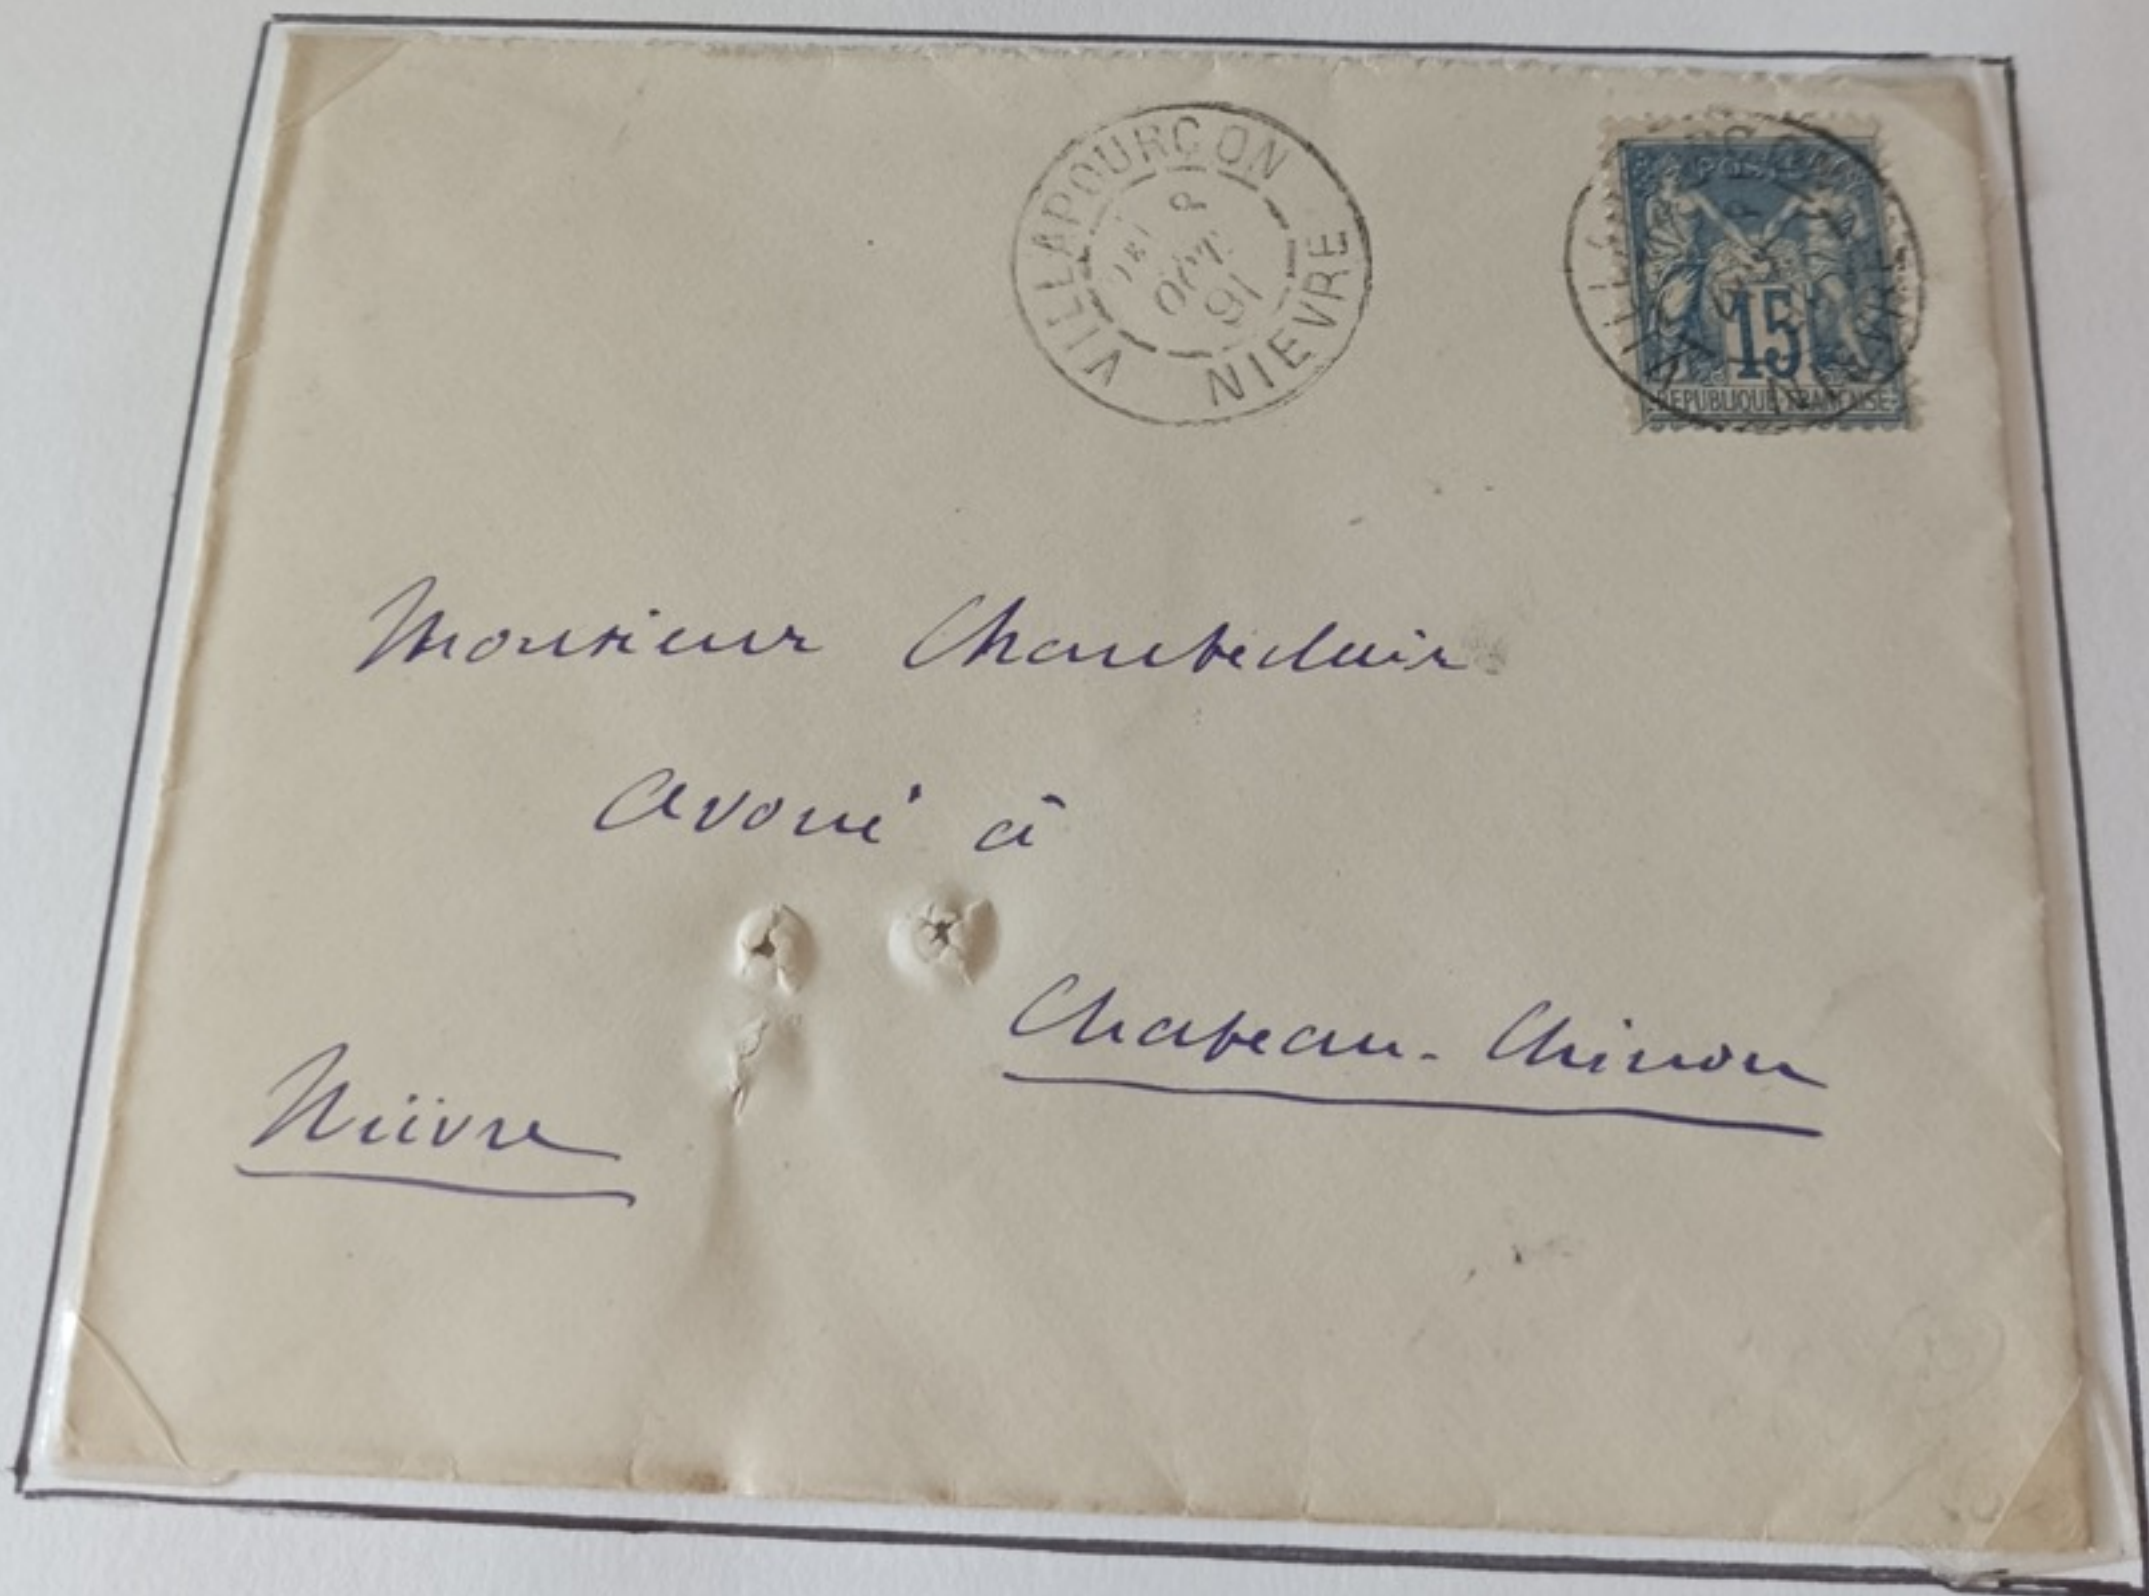 VILLAPOURÇON
NIEVRE
91
POSTES
15
REPUBLIQUE FRANÇAISE
Monsieur Chanteclair
avoué à
Chateau-Chinon
Nièvre